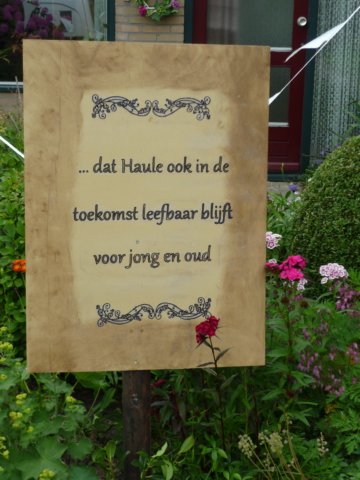 ... dat Haule ook in de
toekomst leefbaar blijft
voor jong en oud